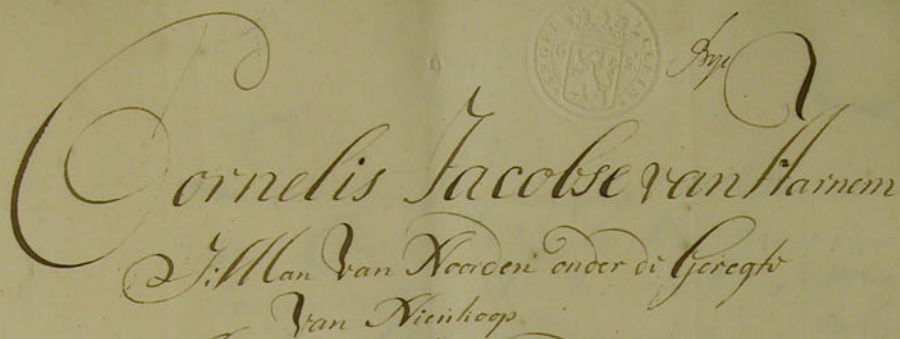 Cornelis Jacobse van Harnem
J: Man van Noorden onder de Geregte
van Nienkoop